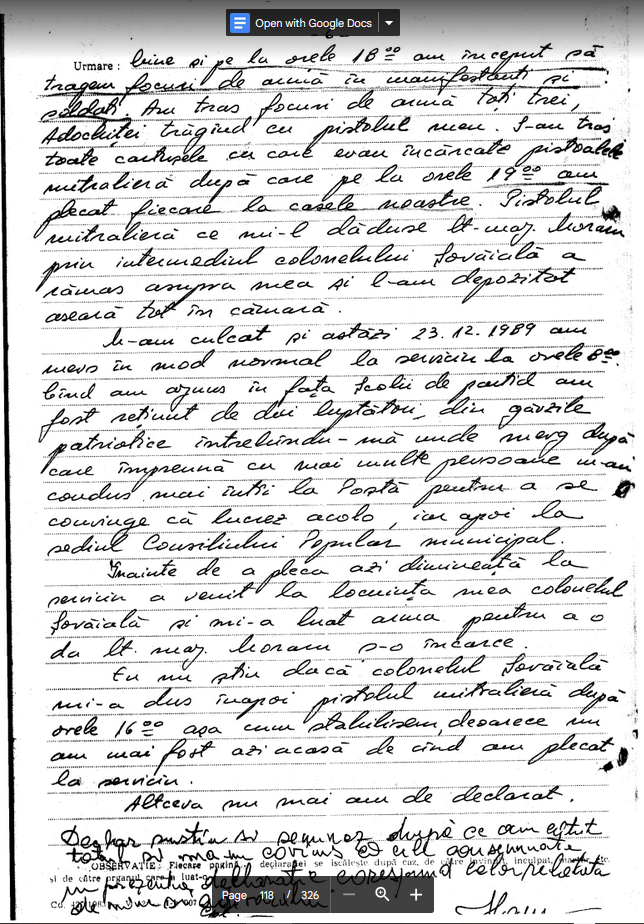 Open with Google Docs
- 6 -
Urmare: bine și pe la orele 18⁰⁰ am început să
tragem focuri de armă în manifestanți și
soldați. Am tras focuri de armă toți trei,
Adochiței trăgînd cu pistolul meu. S-au tras
toate cartușele cu care erau încărcate pistoalele
mitralieră după care pe la orele 19⁰⁰ am
plecat fiecare la casele noastre. Pistolul
mitralieră ce mi-l dăduse lt-maj. Moraru
prin intermediul colonelului Șovăială a
rămas asupra mea și l-am depozitat
aseară tot în cămară.
M-am culcat și astăzi 23.12.1989 am
mers în mod normal la serviciu la orele 8⁰⁰.
Cînd am ajuns în fața Școlii de partid am
fost reținut de doi luptători, din gărzile
patriotice întrebîndu-mă unde merg după
care împreună cu mai multe persoane m-au
condus mai întîi la Poștă pentru a se
convinge că lucrez acolo, iar apoi la
sediul Consiliului Popular municipal.
Înainte de a pleca azi dimineață la
serviciu a venit la locuința mea colonelul
Șovăială și mi-a luat arma pentru a o
da lt. maj. Moraru s-o încarce.
Eu nu știu dacă colonelul Șovăială
mi-a dus înapoi pistolul mitralieră după
orele 16⁰⁰ așa cum stabilisem, deoarece nu
am mai fost azi acasă de cînd am plecat
la serviciu.
Altceva nu mai am de declarat.
Declar susțin și semnez după ce am citit
OBSERVAȚIE: Fiecare pagină a declarației se iscălește după caz, de către învinuit, inculpat,
și de către organul care a luat-o
declarație corespund celor relatate
de mine
Page 118 / 326